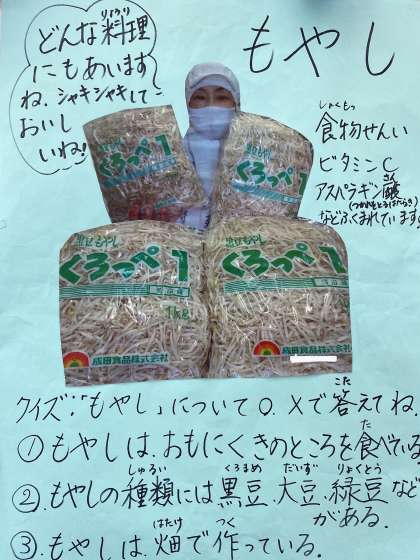 もやし
どんな料理(りょうり)
にもあいます
ね。シャキシャキして
おいし
いね!
食物(しょくもつ)せんい
ビタミンC
アスパラギン酸(さん)
(つかれをとるはたらき)
などふくまれています。
黒豆もやし
くろっぺ1
黒豆もやし
くろっぺ1
黒豆もやし
くろっぺ1
1kg
成田食品株式会社
黒豆もやし
くろっぺ1
成田食品株式会社
クイズ:「もやし」について○.×で答(こた)えてね。
①もやしは、おもにくきのところを食(た)べている
②.もやしの種類(しゅるい)には黒豆(くろまめ)、大豆(だいず)、緑豆(りょくとう)など
がある.
③.もやしは、畑(はたけ)で作(つく)っている.